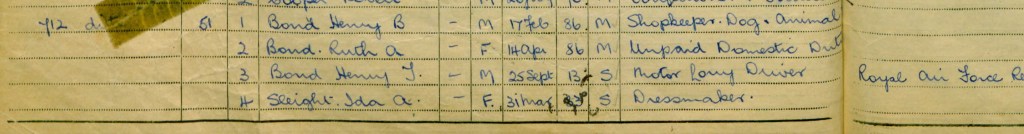 712 51 1 Bond Henry B – M 17 Feb 86 M Shopkeeper. Dog & Animal
2 Bond. Ruth A – F 14 Apr 86 M Unpaid Domestic Dut
3 Bond Henry J. – M 25 Sept 13 S Motor Lorry Driver Royal Air Force Re
4 Sleight. Ida A. – F. 31 Mar S Dressmaker.